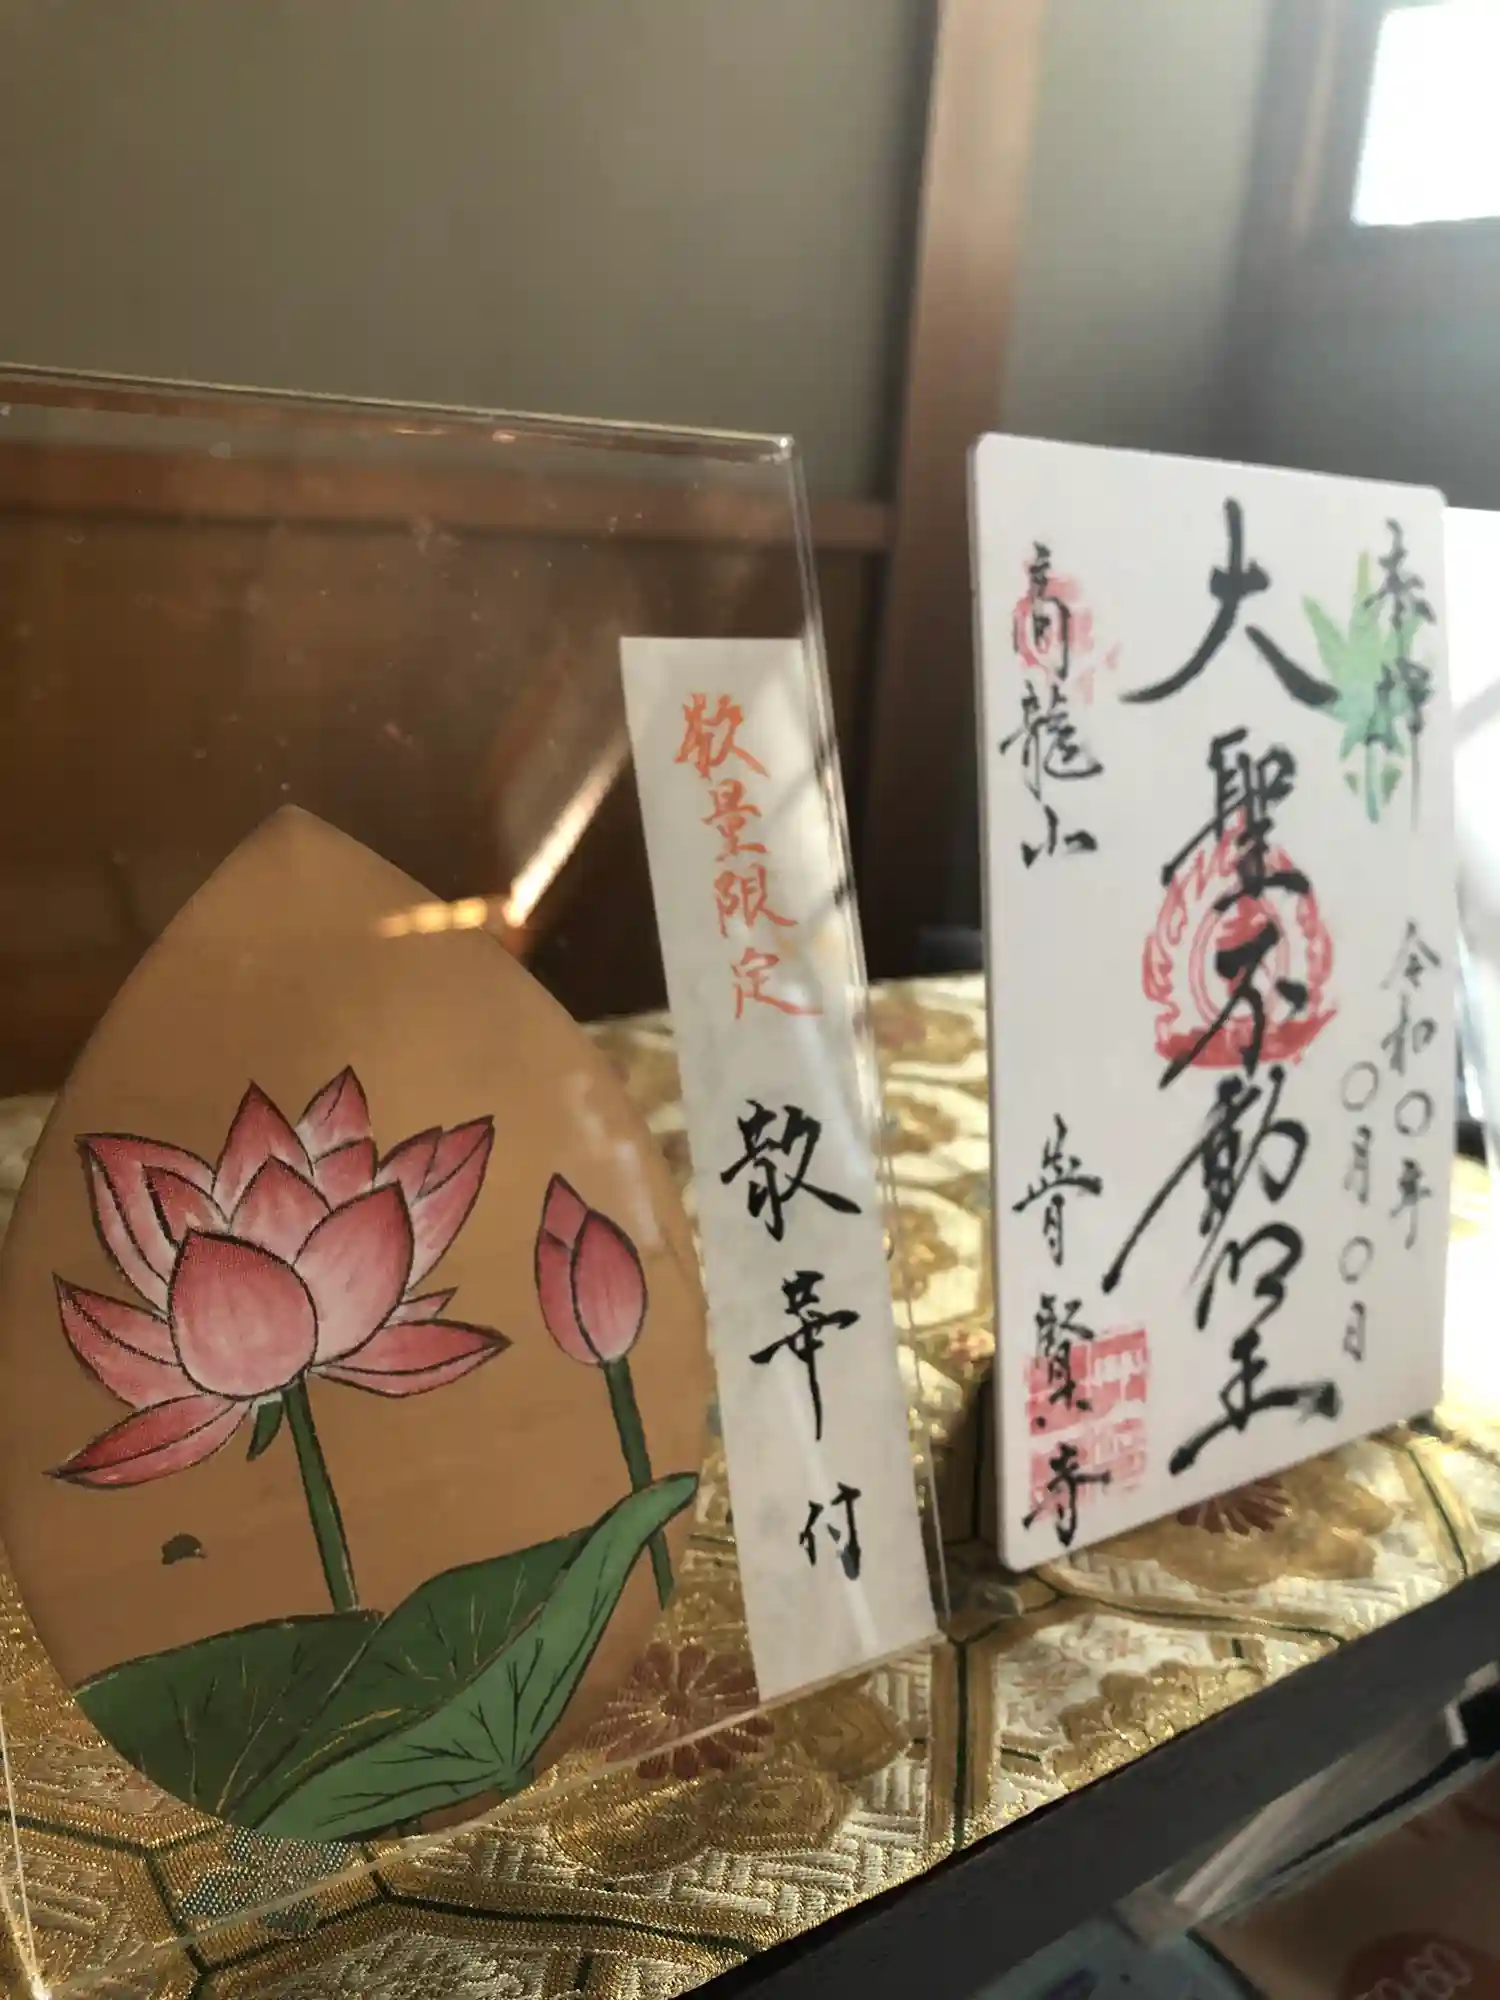 数量限定
散華付
奉拝
令和〇年
〇月〇日
大聖不動明王
高龍山
普賢寺